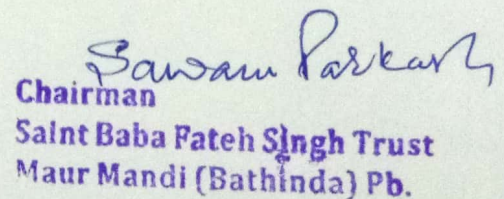 Sawarn Parkash
Chairman
Saint Baba Fateh Singh Trust
Maur Mandi (Bathinda) Pb.